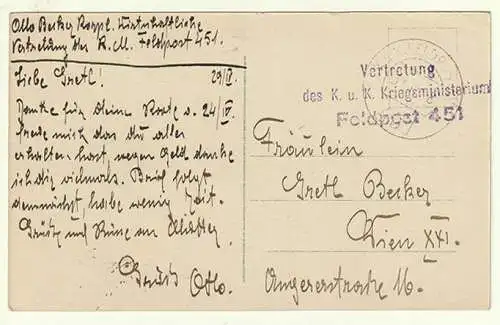 Otto Becker Rozpl. Wirtschaftliche
Vertretung des K. M. Feldpost 451.
Liebe Gretl! 29/IV.
Danke für Deine Karte v. 24/IV.
Freue mich das du alles
erhalten hast, wegen Geld danke
ich dir vielmals. Brief folgt
demnächst, habe wenig Zeit.
Grüße und Küsse an
Gruß Otto.
Vertretung
des K. u. K. Kriegsministerium
Feldpost 451
Fräulein
Gretl Becker
Wien XXI.
Angererstraße 16.